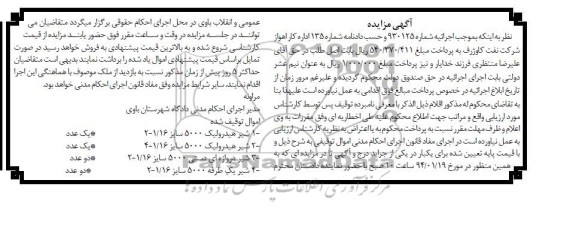 آگهی مزایده
نظر به اینکه بموجب اجرائیه شماره ۹۳۰۱۲۵ و حسب دادنامه شماره ۱۳۵ اداره کار اهواز
شرکت نفت کاوژرف به پرداخت مبلغ ۵۴۰/۳۷۰/۴۱۱ ریال بابت اصل طلب در حق آقای
علیرضا منتظری فرزند خدایار و نیز پرداخت مبلغ ریال به عنوان نیم عشر
دولتی بابت اجرای اجرائیه در حق صندوق دولت محکوم گردیده و علیرغم مرور زمان از
تاریخ ابلاغ اجرائیه در خصوص پرداخت مبالغ فوق اقدامی به عمل نیاورده است علیهذا بنا
به تقاضای محکوم له مذکور اقلام ذیل الذکر با معرفی نامبرده توقیف پس توسط کارشناس
مورد ارزیابی واقع و مراتب جهت اطلاع محکوم علیه طی اخطاریه ای وفق مقررات به وی
اعلام و ظرف مهلت مقرر نسبت به پرداخت محکوم به یا اعتراض به نظریه کارشناس ارزیابی
به عمل نیاورده است در اجرای مفاد قانون اجرای احکام مدنی اموال توقیفی به شرح ذیل و
با قیمت پایه تعیین شده برای یکبار در یکی از جراید درج و آگهی و در مزایده ای که به
همین منظور در مورخ ۹۴/۰۱/۱۹ ساعت ۱۰ صبح با حضور نماینده دادستان محترم
عمومی و انقلاب باوی در محل اجرای احکام حقوقی برگزار میگردد متقاضیان می
توانند در جلسه مزایده در وقت و ساعت مقرر فوق حضور یابند مزایده از قیمت
کارشناسی شروع شده و به بالاترین قیمت پیشنهادی به فروش خواهد رسید در صورت
تمایل براساس قیمت پیشنهادی اموال یاد شده را برداشت نمایند بدیهی است متقاضیان
حداکثر ۵ روز پیش از زمان مذکور نسبت به بازدید از ملک موصوف با هماهنگی این اجرا
اقدام نمایند. سایر شرایط مزایده وفق مفاد قانون اجرای احکام مدنی خواهد بود.
مدیر اجرای احکام مدنی دادگاه شهرستان باوی
اموال توقیف شده
۱- شیر هیدرولیک ۵۰۰۰ سایز ۱/۱۶-۲ *یک عدد
۲- شیر هیدرولیک ۵۰۰۰ سایز ۱/۱۶-۴ *یک عدد
۳- شیر دروازه ای ۵۰۰۰ سایز ۱/۱۶-۲ *دو عدد
۴- شیر یک طرفه ۵۰۰۰ سایز ۱/۱۶-۲ *دو عدد